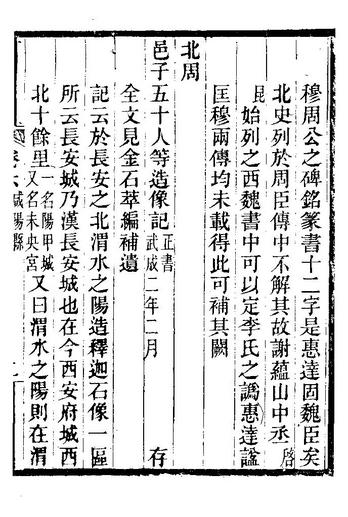 穆周公之碑銘篆書十二字是惠達固魏臣矣
北史列於周臣傳中不解其故謝蘊山中丞啓
昆始列之西魏書中可以定李氏之譌惠達諡
匡穆兩傳均未載得此可補其闕
北周
邑子五十人等造像記正書武成二年二月 存
全文見金石萃編補遺
記云於長安之北渭水之陽造釋迦石像一區
所云長安城乃漢長安城也在今西安府城西
北十餘里一名陽甲城又名未央宮又曰渭水之陽則在渭
卷六咸陽縣